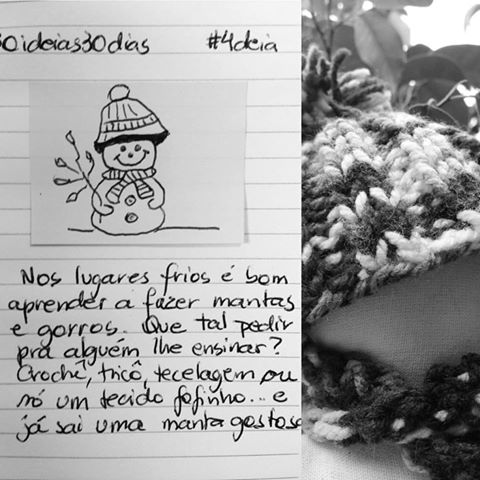 30ideias30dias #4deia
Nos lugares frios é bom
aprender a fazer mantas
e gorros. Que tal pedir
pra alguém lhe ensinar?
Crochê, tricô, tecelagem ou
só um tecido fofinho... e
já sai uma manta gostosa